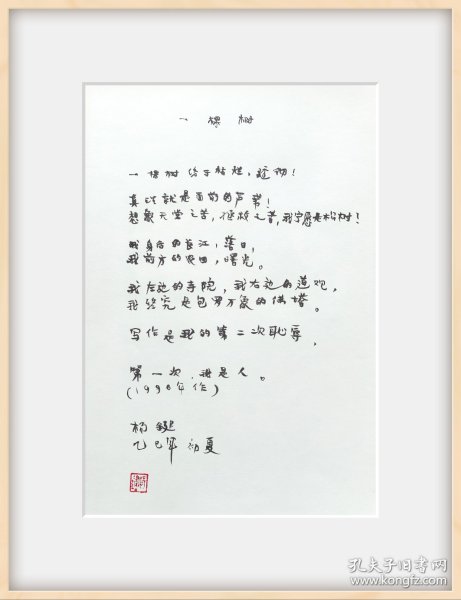 一棵树
一棵树终于枯
就是面前的芦苇!
想象天堂之苦,之苦,我宁愿是树!
我身后的长江,落日,
我前方的农田,曙光。
我左边的寺院,我右边的道观,
我终究是包罗万象的佛塔。
写作是我的第二次耻辱,
第一次,我是人。
杨键
乙巳年 初夏
孔夫子旧书网
www.kongfz.com